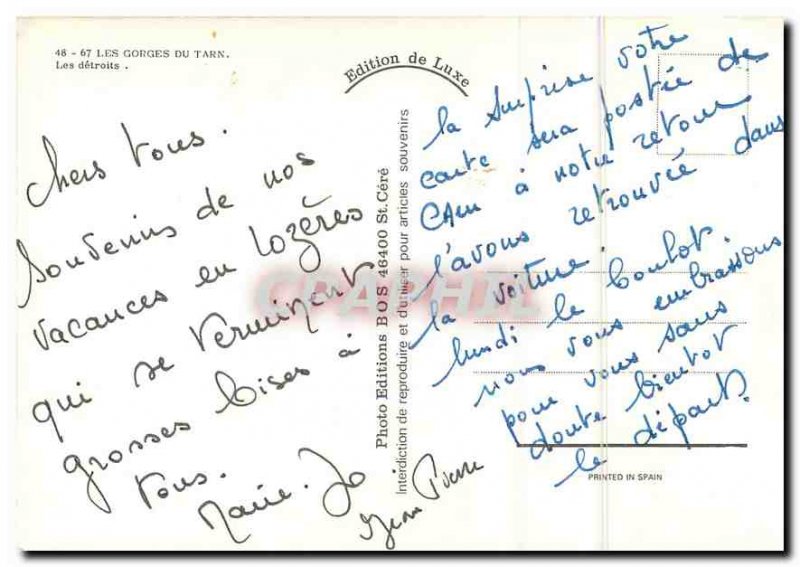 48 - 67 LES GORGES DU TARN.
Les détroits .
Edition de Luxe
Chers tous.
Souvenirs de nos
vacances en Lozères
qui se terminent
grosses bises à
tous.
Marie-Jo
Jean Pierre
Photo Editions BOS 46400 St.Céré
Interdiction de reproduire et d'utiliser pour articles souvenirs
CPAPHIL
la surprise votre
carte sera postée de
à notre retour
l'avons retrouvée dans
la voiture.
lundi le boulot.
nous vous embrassons
pour vous sans
doute bientôt
le départ.
PRINTED IN SPAIN